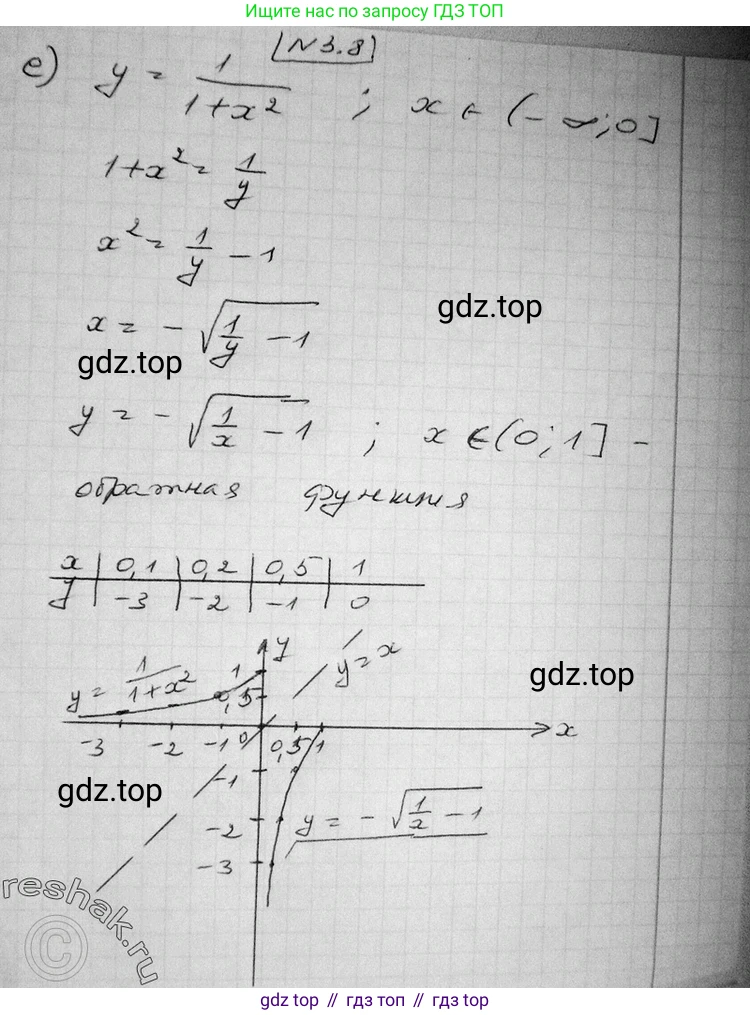 Ищите нас по запросу ГДЗ ТОП
N3.8
е) y = 1/(1+x²) ; x ∈ (-∞;0]
1+x² = 1/y
x² = 1/y - 1
gdz.top
x = - √(1/y - 1)
gdz.top
y = - √(1/x - 1) ; x ∈ (0;1] -
обратная функция
x | 0,1 | 0,2 | 0,5 | 1
y | -3 | -2 | -1 | 0
y = 1/(1+x²) 1 y y = x
gdz.top
0,5
-3 -2 -1 0 0,5 1 x
-1
gdz.top
-2 y = - √(1/x - 1)
-3
reshak.ru
©
gdz top // гдз топ // гдз top